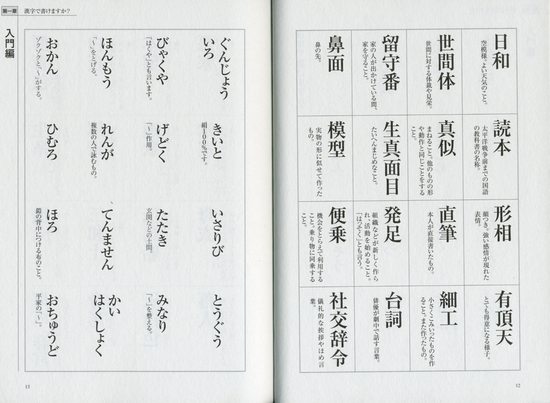 日和
空模様。よい天気のこと。
読本
太平洋戦争前までの国語
の教科書の名称。
形相
顔つき。強い感情が現れた
表情。
有頂天
とても得意になる様子。
世間体
世間に対する体裁や見栄。
真似
まねること。他のものの形
や動作と同じことをする
こと。
直筆
本人が直接書いたもの。
細工
小さくこみいったものを作
ること。また作ったもの。
留守番
家の人が出かけている間、
家を守ること。
生真面目
たいへんまじめなこと。
発足
組織などが新しく作ら
れ、活動を始めること。
「はっそく」とも言う。
台詞
俳優が劇中で話す言葉。
鼻面
鼻の先。
模型
実物の形に似せて作った
もの。
便乗
機会をとらえて利用する
こと。乗り物に同乗する
こと。
社交辞令
儀礼的な挨拶やほめ言
葉。
12
ぐんじょう
いろ
きいと
絹100%です。
いさりび
とうぐう
びゃくや
「はくや」とも言います。
げどく
「〜」作用。
たたき
玄関などの土間。
みなり
「〜」を整える。
ほんもう
「〜」をとげる。
れんが
複数の人で詠むもの。
てんません
かい
はくしょく
おかん
ゾクゾクと、「〜」がする。
ひむろ
ほろ
鎧の背中につける布のこと。
おちゅうど
平家の「〜」。
第一章 漢字で書けますか?
入門編
13